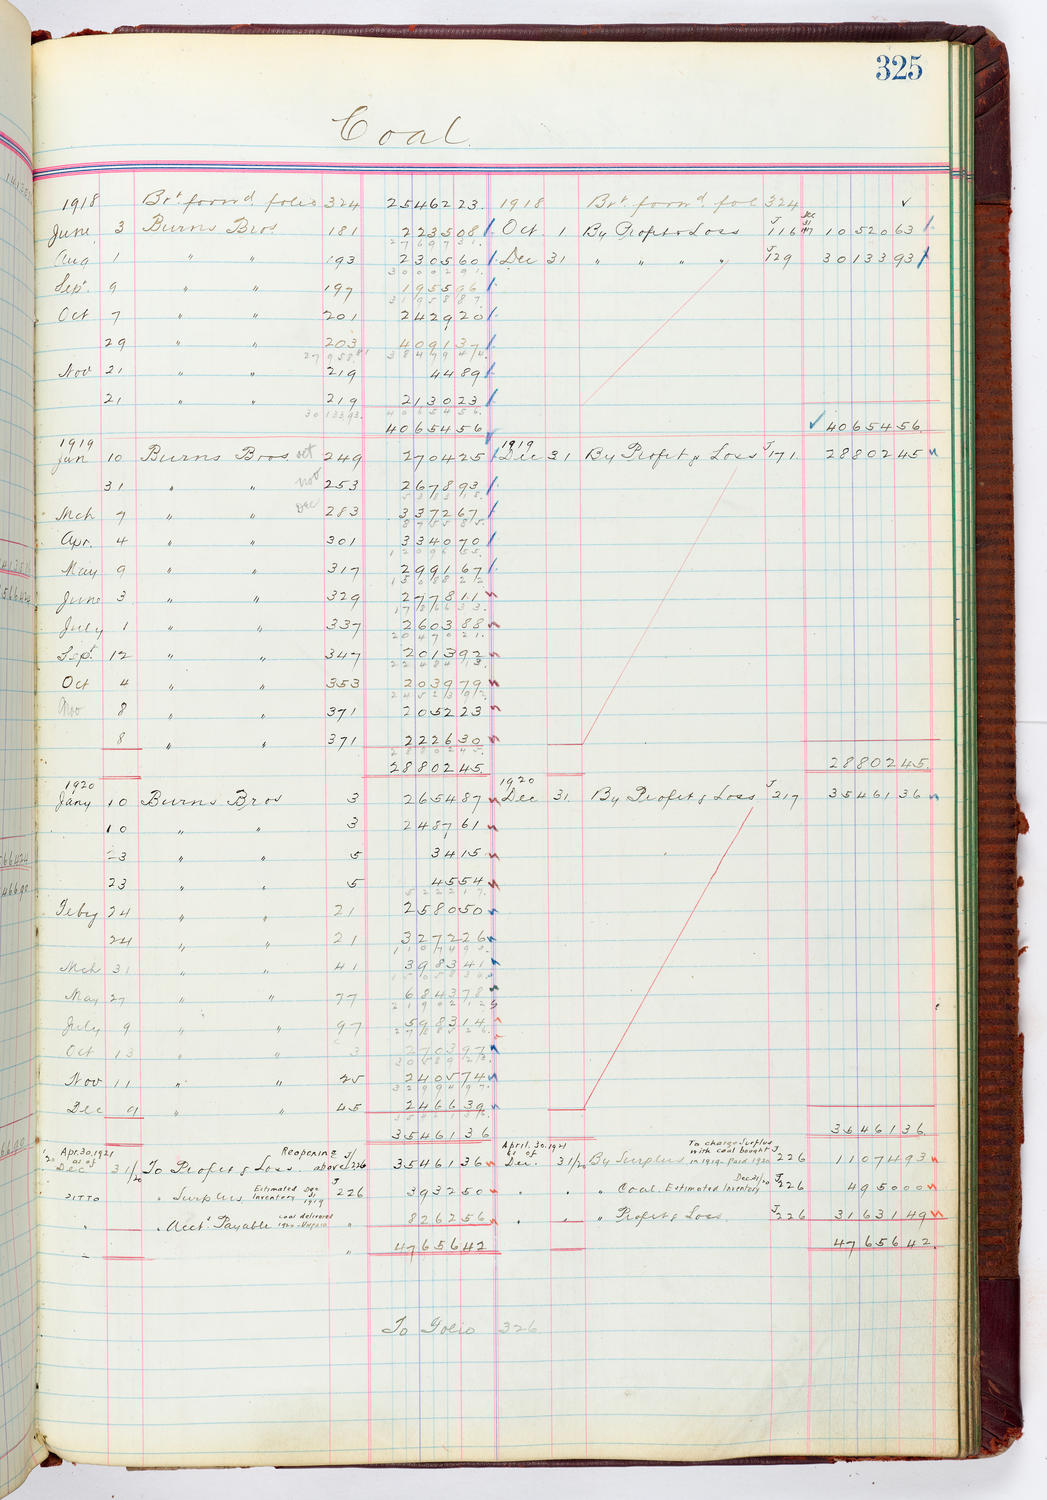 325
Coal
1918 Brt. forw'd folio 324 2546223. 1918 Brt. forw'd fol 324 ✓
June 3 Burns Bros. 181 223508 Oct 1 By Profit & Loss J 116 Dec 31 /17 1052063
2769731.
Aug 1 " " 193 230560 Dec 31 " " " " J 129 3013393
3000291.
Sept. 9 " " 197 195596
3195887.
Oct 7 " " 201 242920
29 " " 203 409137
2795881 3847944.
Nov 21 " " 219 4489
21 " " 219 213023
3013393. 4065456.
4065456 ✓ 4065456.
1919 1919
Jan 10 Burns Bros Oct 249 270425 Dec 31 By Profit & Loss J 171 2880245
31 " " Nov 253 267893
538318.
Mch 7 " " Dec 283 337267
875585.
Apr. 4 " " 301 334070
1209655.
May 9 " " 317 299167
1508822
June 3 " " 329 277811
1786633.
July 1 " " 337 260388
2047021.
Sept. 12 " " 347 201392
2248413.
Oct 4 " " 353 203979
2452392.
Nov 8 " " 371 205223
8 " " 371 222630
2880245.
2880245. 2880245.
1920 1920
Jany 10 Burns Bros 3 265487 Dec 31. By Profit & Loss J 217 3546136
10 " " 3 248761
23 " " 5 3415
23 " " 5 4554
522217.
Feby 24 " " 21 258050
24 " " 21 327226
1107493.
Mch 31 " " 41 398341
1505834
May 27 " " 77 684378
2190212
July 9 " " 97 598314
2788526.
Oct 13 " " 3 270397
3058923.
Nov 11 " " 25 240574
3299497.
Dec 9 " " 45 246639
3546136
3546136 3546136.
Apr. 30, 1921 as of Dec 31/20 To Profit & Loss. Reopening above J/226 3546136 April. 30. 1921 as of Dec. 31/20 By Surplus To charge Surplus with coal bought in 1919 - Paid 1920 J 226 1107493
Ditto " Surplus Estimated Inventory Dec 31 1919 J 226 393250 " " " Coal. Estimated Inventory Dec 31/20 J 226 495000
" " Acct's Payable Coal delivered 1920 - Unpaid " 826256 " " " Profit & Loss J 226 3163149
" " 4765642 4765642.
To Folio 326